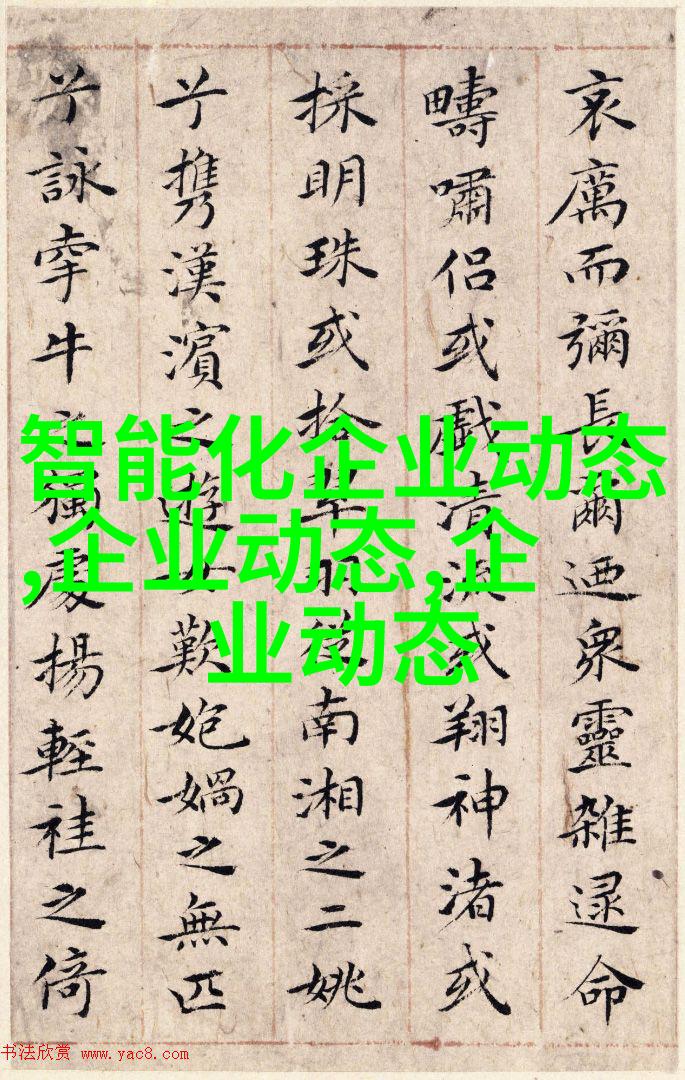 哀厲而彌長爾迺衆靈雜遝命
疇嘯侶或戲清流或翔神渚或
採明珠或拾翠羽從南湘之二姚
兮攜漢濱之遊女歎媧之無匹
兮詠牽牛之獨處揚輕袿之倚
智能化企业动态
,企业动态,企
业动态
书法欣赏 www.yac8.com